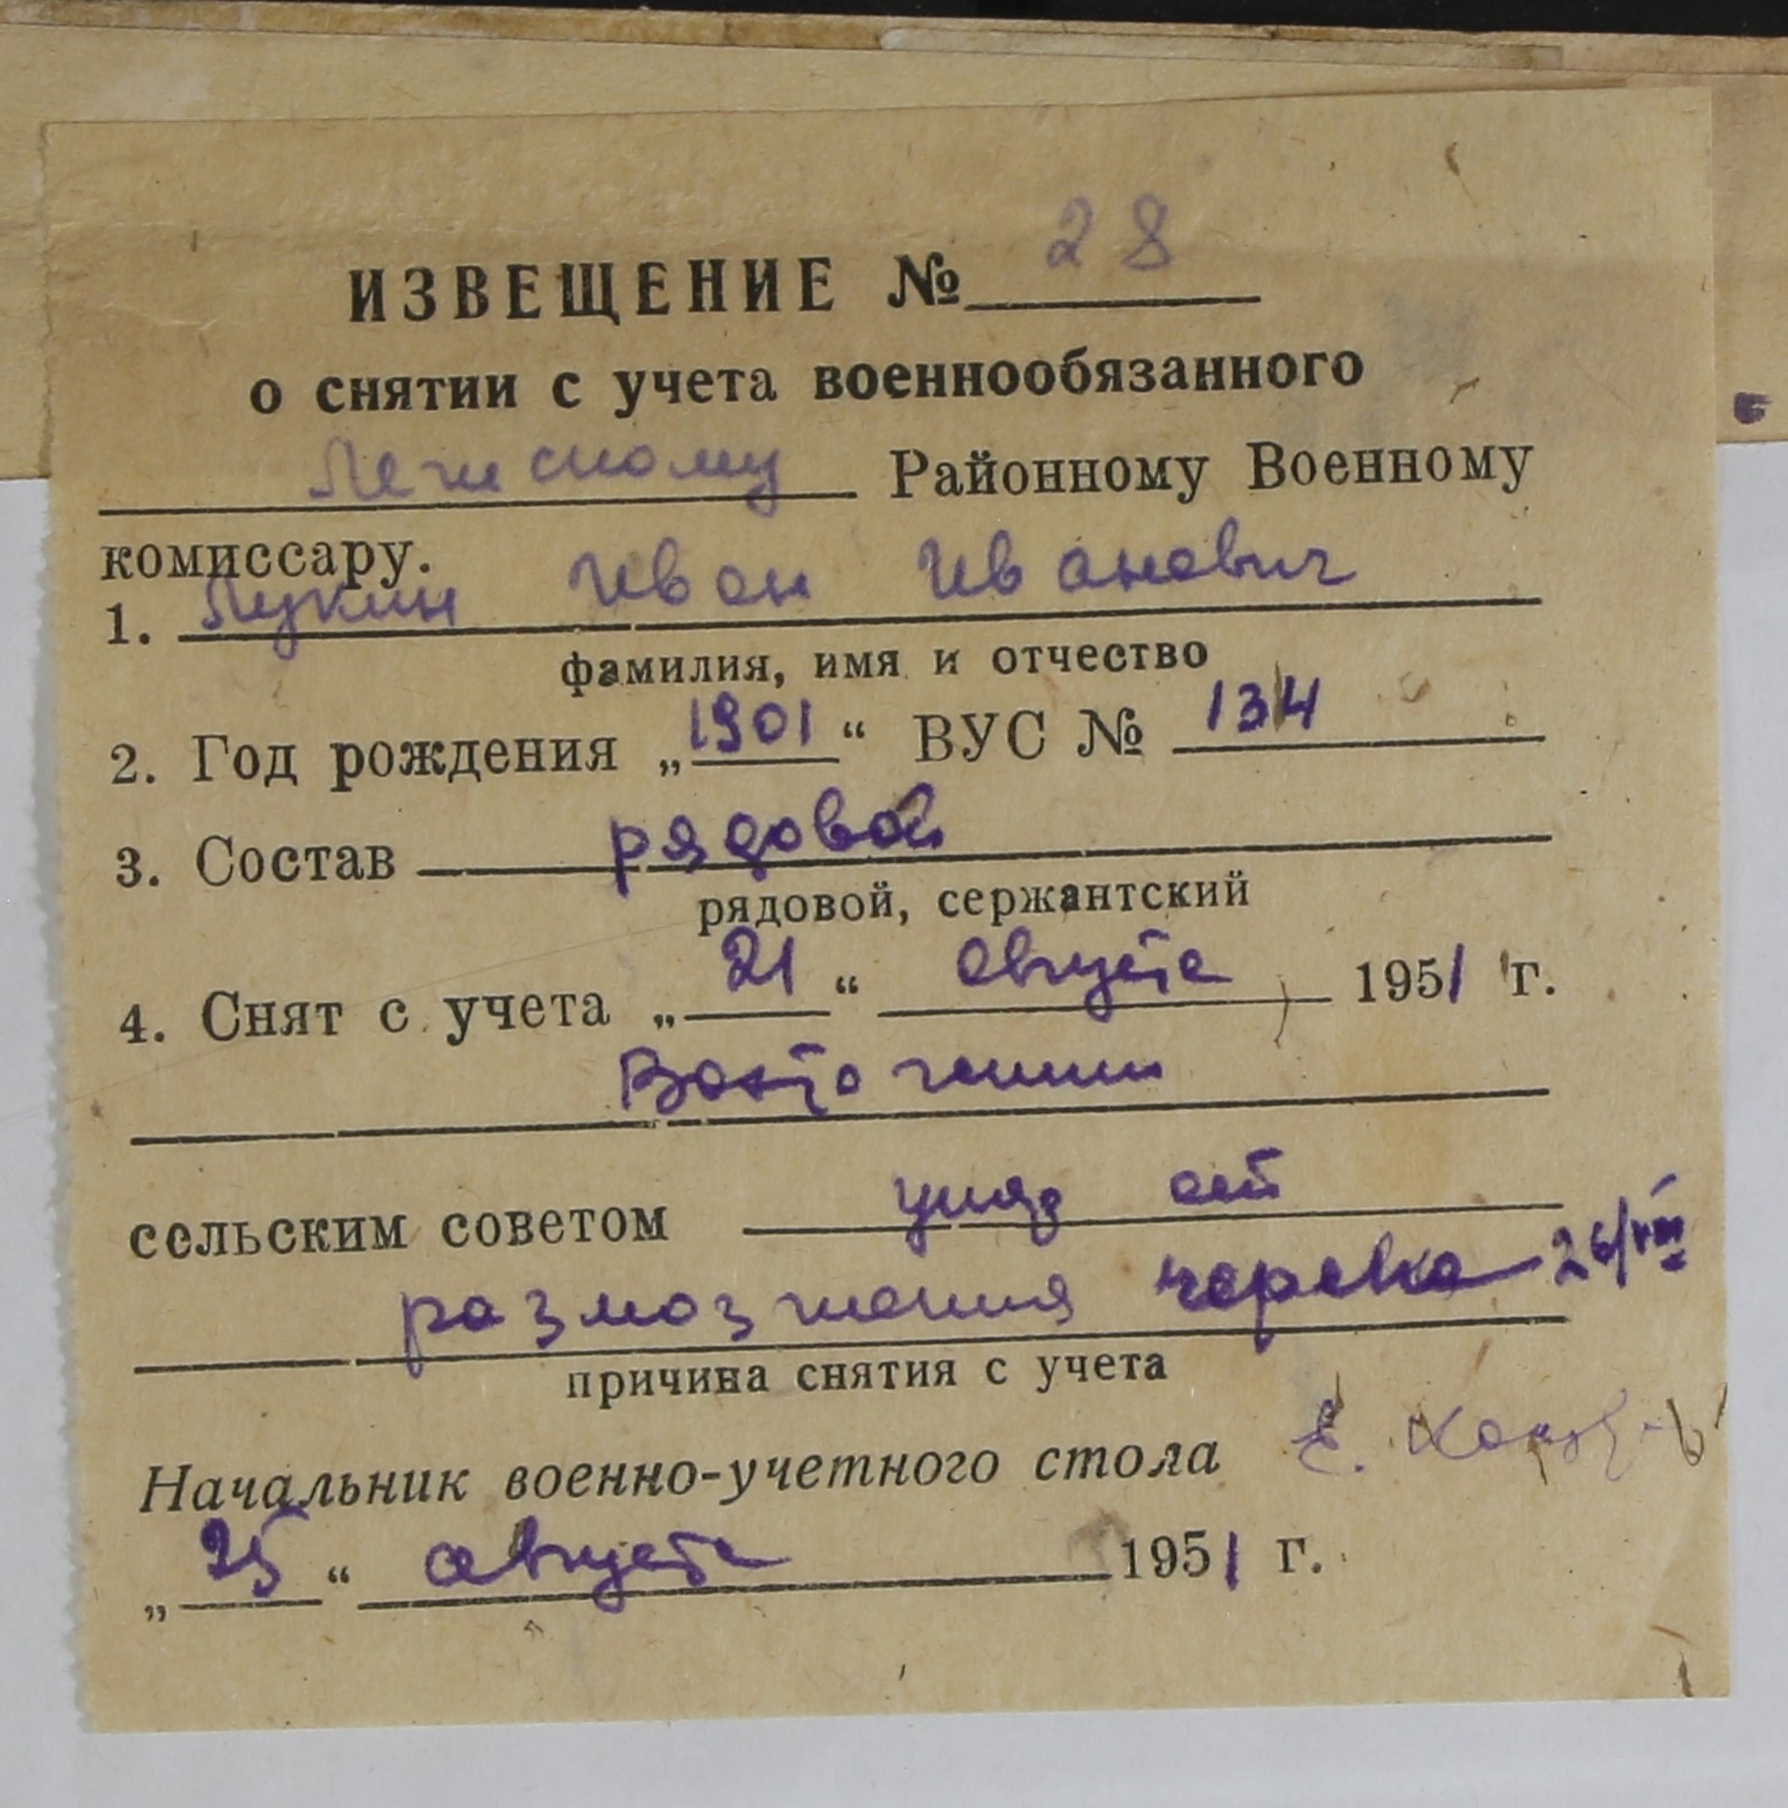 ИЗВЕЩЕНИЕ № 28
о снятии с учета военнообязанного
Районному Военному
комиссару.
1. Лукин Иван Иванович
фамилия, имя и отчество
2. Год рождения „1901“ ВУС № 134
3. Состав рядовой
рядовой, сержантский
4. Снят с учета „21“ августа 1951 г.
сельским советом
размозжения
причина снятия с учета
Начальник военно-учетного стола Е.
„25“ августа 1951 г.